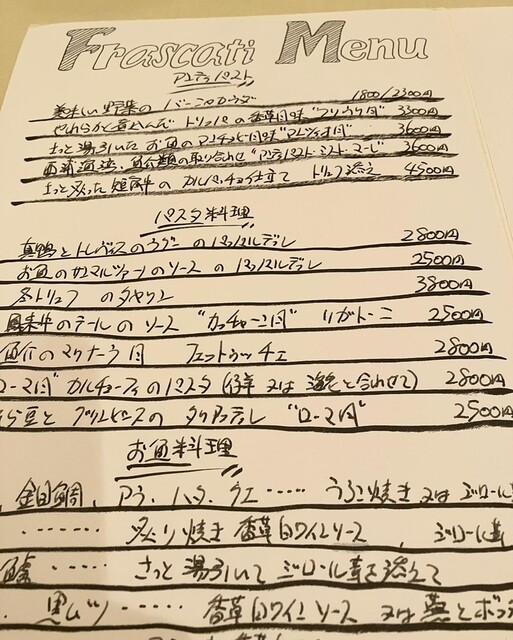 Frascati Menu
アンティパスト
美味しい野菜の バーニャカウダ 1800/2300円
やわらかく煮込んだ トリッパの香草風味 3300円
さっと湯引いた お魚の アンチョビ風味 3600円
西浦海流、魚介類の取り合わせ "アンティパスト・ミスト・マーレ" 3600円
さっと炙った 短角牛の カルパッチョ仕立て トリュフ添え 4500円
パスタ料理
真鴨とトレビスのラグー のパッパルデッレ 2800円
お魚のサンマルツァーノのソース のパッパルデッレ 2500円
冬トリュフ のタヤリン 3800円
牛のテールのソース "カッチャーラ風" リガトーニ 2500円
魚介のマリナーラ風 フェットゥッチェ 2800円
ローマ風 カルチョーフィのパスタ (仔羊 又は 海老と合わせて) 2800円
ら豆とグリンピースの タリアッテレ "ローマ風" 2500円
お魚料理
金目鯛、アラ、ハタ、クエ…… うろこ焼き 又は ジロール
…… 炙り焼き 香草白ワインソース 、ジロール茸
…… さっと湯引いて ジロール茸を添えて
黒ムツ…… 香草白ワインソース 又は